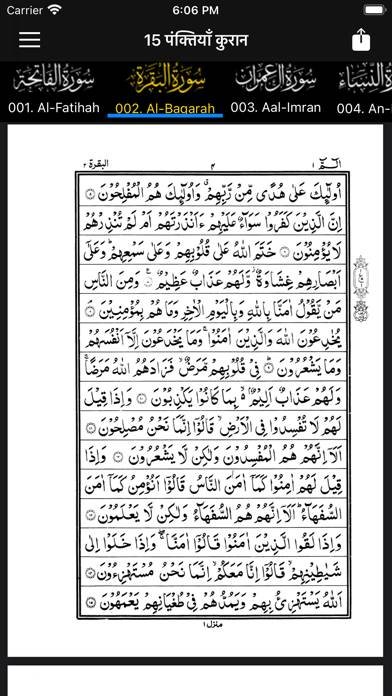 Carrier 6:06 PM
15 पंक्तियाँ कुरान
سورة الفاتحة سورة البقرة سورة ال عمران سورة النساء
001. Al-Fatihah 002. Al-Baqarah 003. Aal-Imran 004. An-
البقرة ٢ ٣ الٓمّٓ ١
اُولٰٓئِكَ عَلٰى هُدًى مِّنْ رَّبِّهِمْ ۙ وَاُولٰٓئِكَ هُمُ الْمُفْلِحُوْنَ ۝
اِنَّ الَّذِيْنَ كَفَرُوْا سَوَآءٌ عَلَيْهِمْ ءَاَنْذَرْتَهُمْ اَمْ لَمْ تُنْذِرْهُمْ
لَا يُؤْمِنُوْنَ ۝ خَتَمَ اللّٰهُ عَلٰى قُلُوْبِهِمْ وَعَلٰى سَمْعِهِمْ ؕ وَعَلٰٓى
اَبْصَارِهِمْ غِشَاوَةٌ ۫ وَّلَهُمْ عَذَابٌ عَظِيْمٌ ۝ وَمِنَ النَّاسِ
مَنْ يَّقُوْلُ اٰمَنَّا بِاللّٰهِ وَبِالْيَوْمِ الْاٰخِرِ وَمَا هُمْ بِمُؤْمِنِيْنَ ۝
يُخٰدِعُوْنَ اللّٰهَ وَالَّذِيْنَ اٰمَنُوْا ۚ وَمَا يَخْدَعُوْنَ اِلَّآ اَنْفُسَهُمْ
وَمَا يَشْعُرُوْنَ ۝ فِيْ قُلُوْبِهِمْ مَّرَضٌ ۙ فَزَادَهُمُ اللّٰهُ مَرَضًا ۚ
وَلَهُمْ عَذَابٌ اَلِيْمٌۢ ۙ بِمَا كَانُوْا يَكْذِبُوْنَ ۝ وَاِذَا قِيْلَ
لَهُمْ لَا تُفْسِدُوْا فِي الْاَرْضِ ۙ قَالُوْٓا اِنَّمَا نَحْنُ مُصْلِحُوْنَ ۝
اَلَآ اِنَّهُمْ هُمُ الْمُفْسِدُوْنَ وَلٰكِنْ لَّا يَشْعُرُوْنَ ۝ وَاِذَا
قِيْلَ لَهُمْ اٰمِنُوْا كَمَآ اٰمَنَ النَّاسُ قَالُوْٓا اَنُؤْمِنُ كَمَآ اٰمَنَ
السُّفَهَآءُ ؕ اَلَآ اِنَّهُمْ هُمُ السُّفَهَآءُ وَلٰكِنْ لَّا يَعْلَمُوْنَ ۝
وَاِذَا لَقُوا الَّذِيْنَ اٰمَنُوْا قَالُوْٓا اٰمَنَّا ۚ وَاِذَا خَلَوْا اِلٰى
شَيٰطِيْنِهِمْ ۙ قَالُوْٓا اِنَّا مَعَكُمْ ۙ اِنَّمَا نَحْنُ مُسْتَهْزِءُوْنَ ۝
اَللّٰهُ يَسْتَهْزِئُ بِهِمْ وَيَمُدُّهُمْ فِيْ طُغْيَانِهِمْ يَعْمَهُوْنَ ۝
منزل ١